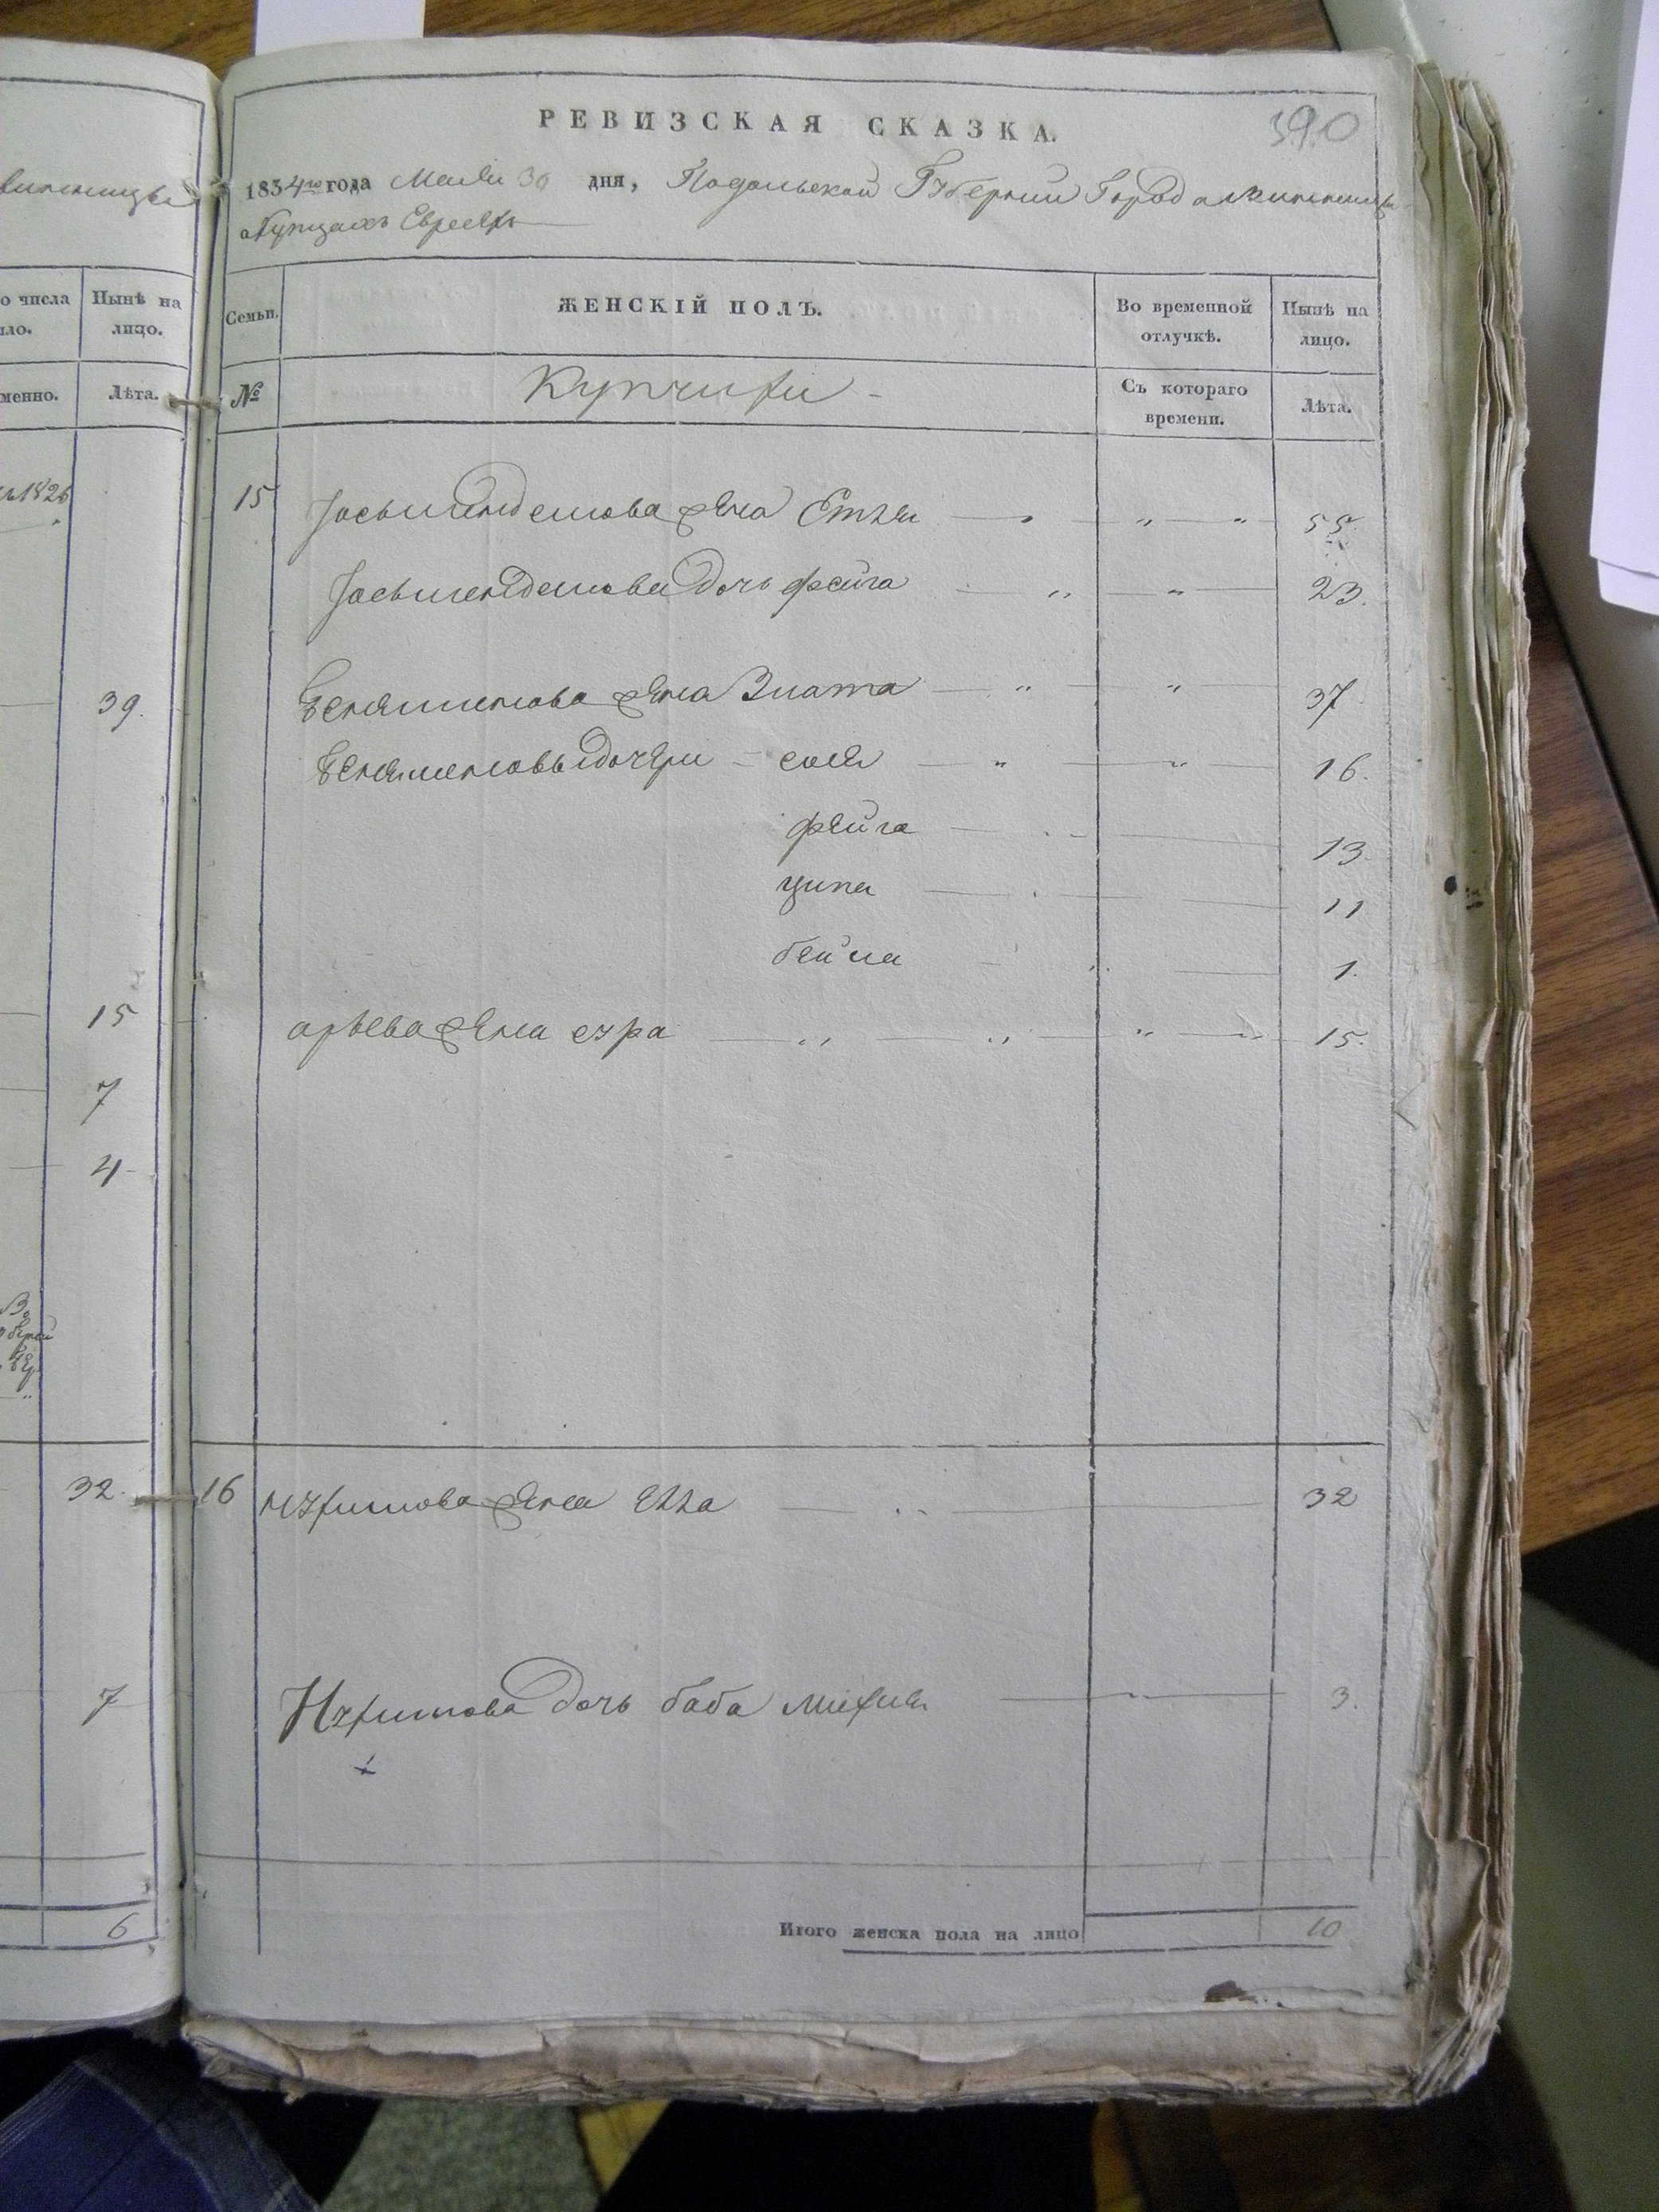 390
РЕВИЗСКАЯ СКАЗКА.
1834го года Маія 30 дня, Подольской Губернии Города Винницы
о Купцахъ Евреяхъ
о числа
ло.
Нынѣ на лицо.
Семьи.
ЖЕНСКІЙ ПОЛЪ.
Во временной отлучкѣ.
Нынѣ на лицо.
менно.
Лѣта.
№
Купчихи
Съ котораго времени.
Лѣта.
1826
15 жена Етля 55
дочь фейга 23.
39.
Беняминова жена Злата 37
Беняминовы дочери сося 16.
фейга 13
ципа 11
бейла 1.
15
арьева жена сура 15.
7
4
32.
16 жена 32
7
дочь баба 3.
6
Итого женска пола на лицо 10